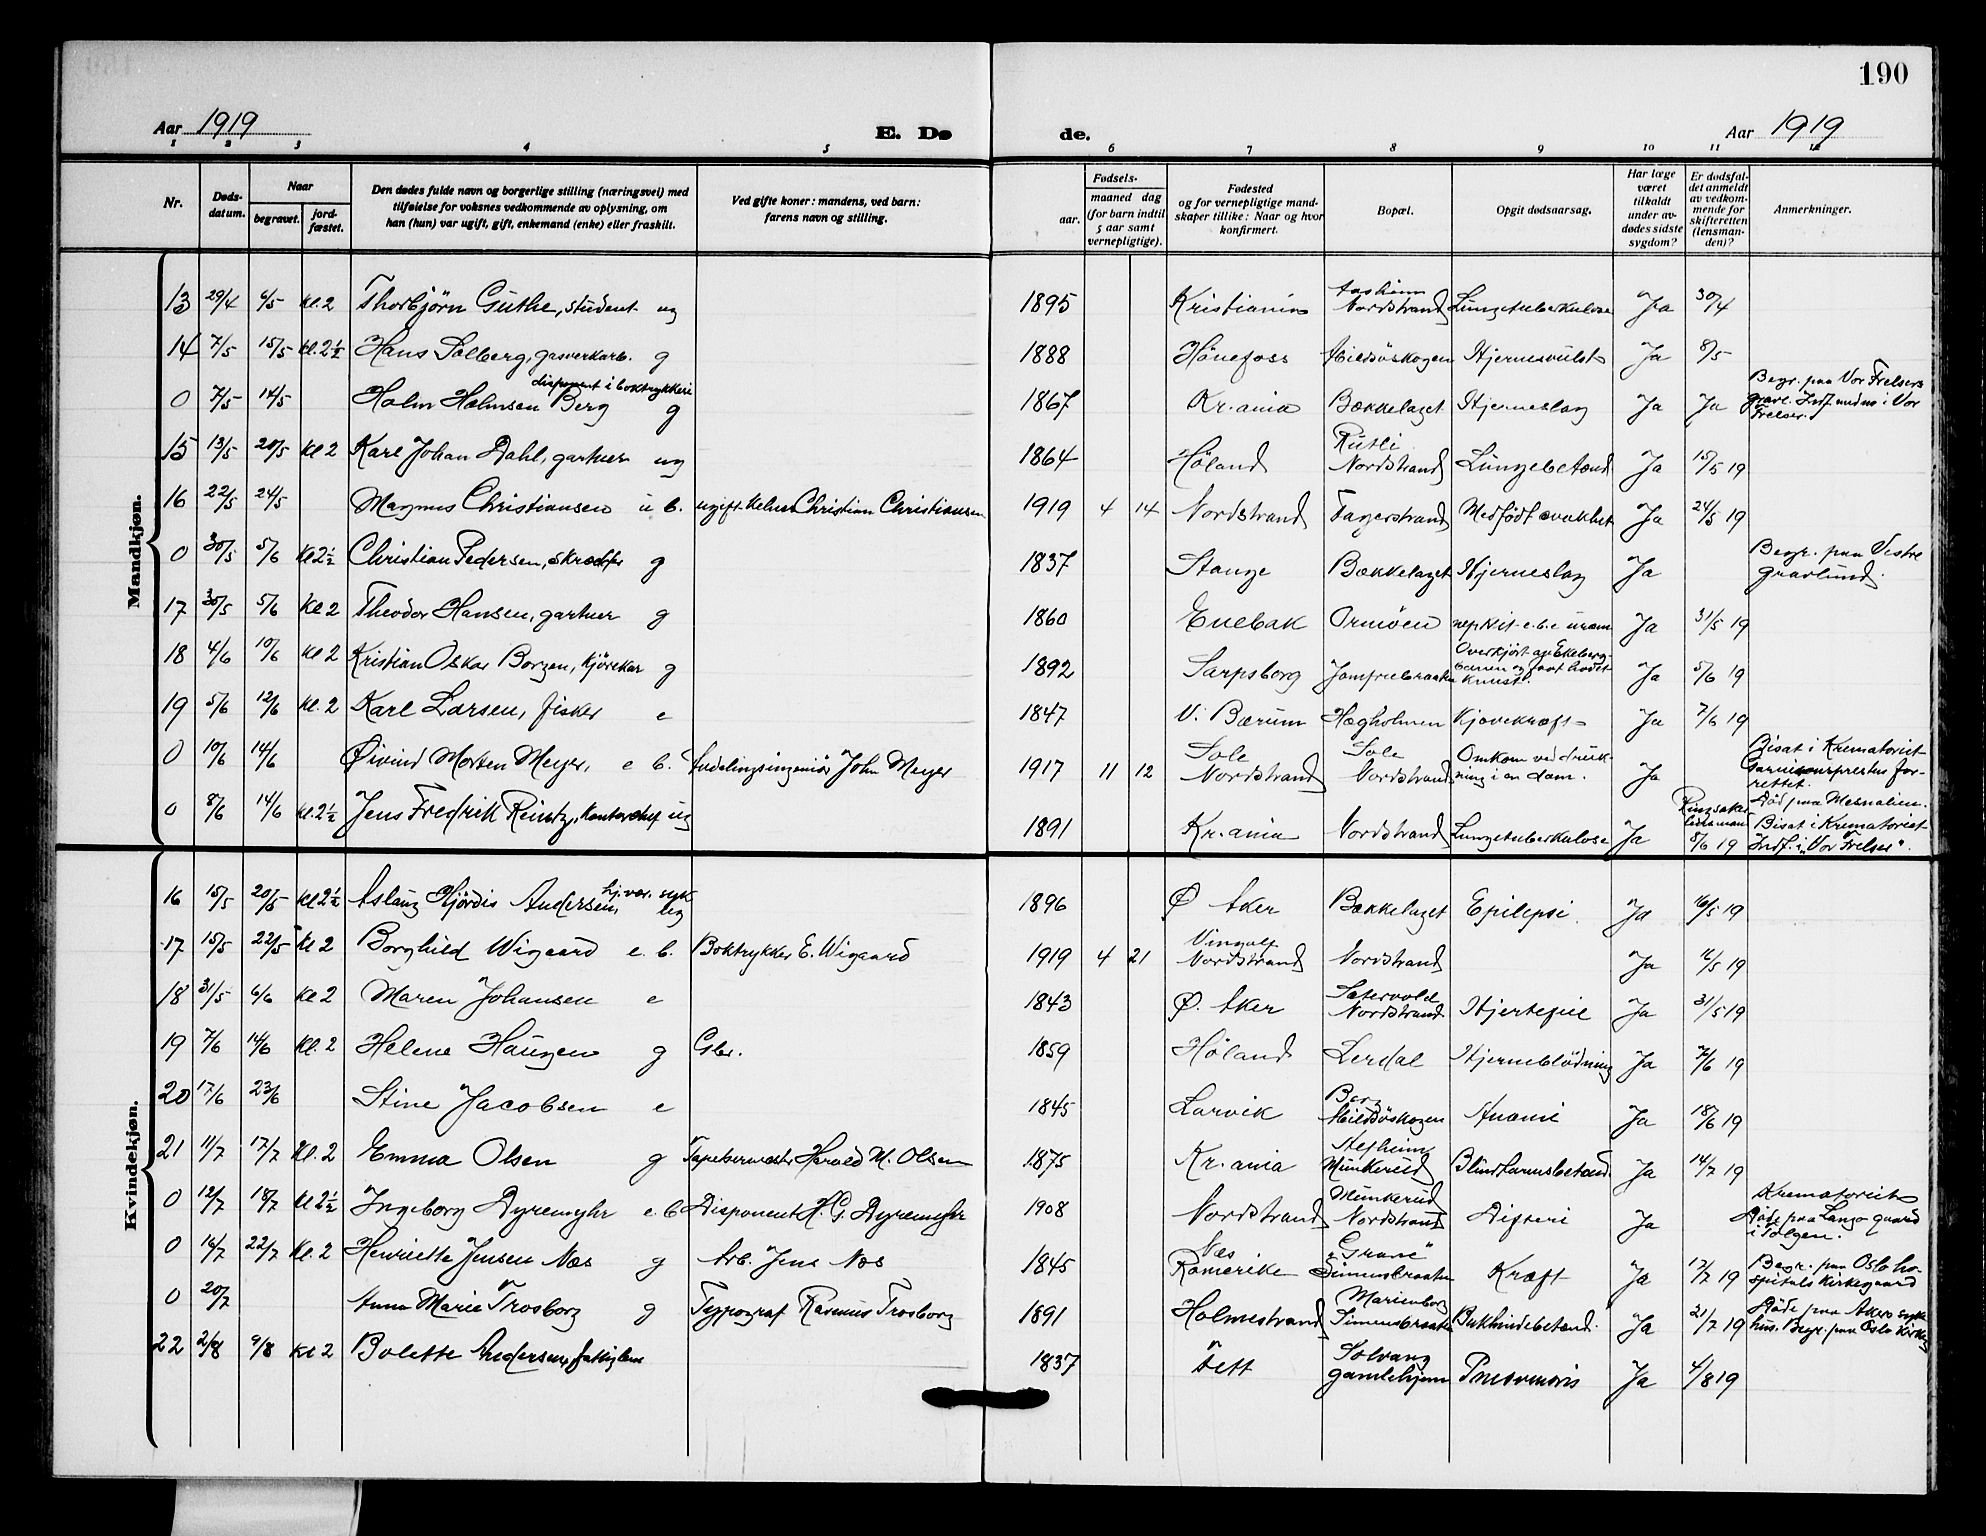 190
Aar 1919 E. Dø de. Aar 1919
1 2 3 4 5 6 7 8 9 10 11 12
Nr. Døds-datum. Naar begravet. jord-fæstet. Den dødes fulde navn og borgerlige stilling (næringsvei) med tilføielse for voksnes vedkommende av oplysning, om han (hun) var ugift, gift, enkemand (enke) eller fraskilt. Ved gifte koner: mandens, ved barn: farens navn og stilling. Fødsels- aar. maaned dag (for barn indtil 5 aar samt vernepligtige). Fødested og for vernepligtige mand-skaper tillike: Naar og hvor konfirmert. Bopæl. Opgit dødsaarsag. Har læge været tilkaldt under av-dødes sidste sygdom? Er dødsfal-det anmeldt av vedkom-mende for skifteretten (lensman-den)? Anmerkninger.
Mandkjøn.
13 29/4 6/5 Kl. 2 Thorbjörn Guthe, student ug 1895 Kristiania Nordstrand Lungetuberkulose Ja 30/4
14 7/5 15/5 Kl. 2½ Hans Solberg, gasverkarb. g 1888 Hönefoss Hjernesvulst Ja 8/5
0 7/5 14/5 Holm Holmsen Berg disponent i boktrykkeri g 1867 Kr.ania Bækkelaget Hjerneslag Ja Ja Begr. paa Vor Frelsers gravl. Indf. i Vor Frelser.
15 13/5 20/5 Kl 2 Karl Johan Dahl, gartner ug 1864 Höland Rutli Nordstrand Lungebetænd Ja 15/5 19
16 22/5 24/5 Magnus Christiansen u. b. ugift Christian Christiansen 1919 4 14 Nordstrand Fagerstrand Medfödt svakhet Ja 24/5 19
0 30/5 5/6 Kl 2½ Christian Pedersen, skrædder g 1837 Stange Bækkelaget Hjerneslag Ja Begr. paa Vestre gravlund.
17 30/5 5/6 Kl 2 Theodor Hansen, gartner g 1860 Enebak Ormöen Ja 31/5 19
18 4/6 10/6 Kl 2 Kristian Oskar Borgen, kjörekar g 1892 Sarpsborg Jomfrubraaten Overkjört av Ekeberg-banen og faat hodet knust. Ja 5/6 19
19 5/6 12/6 Kl. 2 Karl Larsen, fisker e 1847 V. Bærum Hægholmen Kjævekræft Ja 7/6 19
0 10/6 14/6 Øivind Morten Meyer, e. b. Avdelingsingeniör John Meyer 1917 11 12 Sole Nordstrand Sole Nordstrand Omkom ved druk-ning i en dam. Ja Bisat i Krematoriet Garnisonsprestes for-rettet.
0 8/6 14/6 Kl. 2½ Jens Fredrik Reintz, Kontorchef ug 1891 Kr.ania Nordstrand Lungetuberkulose Ja Ringsaker lensmand 8/6 19 Död paa Mesnalien. Bisat i Krematoriet Indf. i „Vor Frelser".
Kvindekjøn.
16 15/5 20/5 Kl 2½ Aslaug Hjördis Andersen, hj.vær. syk ug 1896 Ø Aker Bækkelaget Epilepsi. Ja 16/5 19
17 15/5 22/5 Kl 2 Borghild Wigaard e. b. Boktrykker E. Wigaard 1919 4 21 Vingolf Nordstrand Nordstrand Ja 16/5 19
18 31/5 6/6 Kl 2 Maren Johansen e 1843 Ø. Aker Sætervold Nordstrand Hjertefeil Ja 31/5 19
19 7/6 14/6 Kl. 2 Helene Haugen g Gbr. 1859 Höland Lerdal Hjerneblödning Ja 7/6 19
20 17/6 23/6 Stine Jacobsen e 1845 Larvik Berg Anæmi Ja 18/6 19
21 11/7 17/7 Kl. 2 Emma Olsen g Tapetsermester Harald M. Olsen 1875 Kr.ania Munkerud Blindtarmsbetænd. Ja 14/7 19
0 12/7 18/7 Kl 2½ Ingeborg Dyremyhr e. b Disponent H. G. Dyremyhr 1908 Nordstrand Munkerud Nordstrand Difteri Ja Krematoriet Döde paa Langö gaard i
0 16/7 22/7 Kl. 2 Henriette Jensen Næs g Arb. Jens Næs 1845 Næs Romerike „Grane" Simensbraaten Kræft Ja 17/7 19 Begr. paa Oslo ho-spitals Kirkegaard
0 20/7 Anna Marie Trosborg g Typograf Rasmus Trosborg 1891 Holmestrand Marienborg Simensbraaten Bukhindebetænd. Ja 21/7 19 Döde paa Akers syke-hus. Begr. paa Oslo Kirkeg
22 2/8 9/8 Kl 2 Bolette Andersen, fattiglem 1837 Fett Solvang gamlehjem Pneumoni Ja 4/8 19